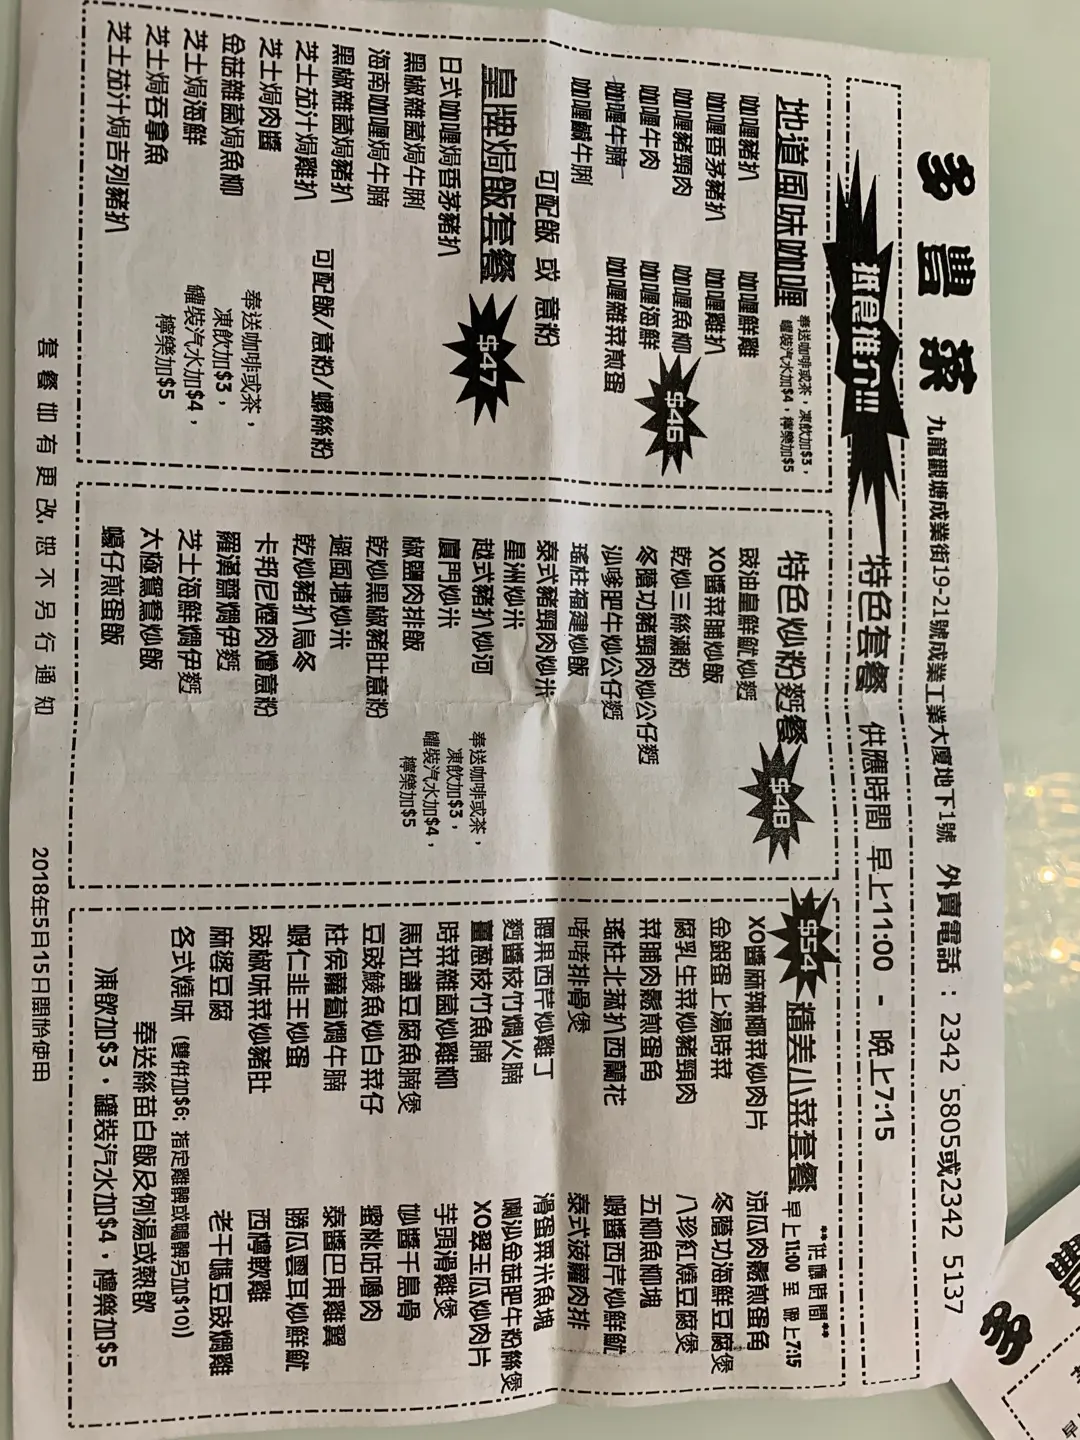 多豐茶
九龍觀塘成業街19-21號成業工業大廈地下1號 外賣電話：2342 5805或2342 5137
抵食推介!!!
特色套餐 供應時間 早上11:00 - 晚上7:15
地道風味咖喱
奉送咖啡或茶，凍飲加$3，
罐裝汽水加$4，檸樂加$5
咖喱豬扒 咖喱鮮雞
咖喱香茅豬扒 咖喱雞扒
咖喱豬頸肉 咖喱魚柳
咖喱牛肉 咖喱海鮮
咖喱牛腩 咖喱雜菜煎蛋
咖喱鹹牛脷
$46
可配飯 或 意粉
皇牌焗飯套餐
$47
日式咖喱焗香茅豬扒
黑椒雜菌焗牛脷
海南咖喱焗牛腩
黑椒雜菌焗豬扒
芝士茄汁焗雞扒
芝士焗肉醬
金菇雜菌焗魚柳
芝士焗海鮮
芝士焗吞拿魚
芝士茄汁焗吉列豬扒
可配飯/意粉/螺絲粉
奉送咖啡或茶，
凍飲加$3，
罐裝汽水加$4，
檸樂加$5
特色炒粉麵餐
$48
豉油皇鮮魷炒麵
XO醬菜脯炒飯
乾炒三絲瀨粉
冬蔭功豬頸肉炒公仔麵
沙嗲肥牛炒公仔麵
瑤柱福建炒飯
泰式豬頸肉炒米
星洲炒米
越式豬扒炒河
廈門炒米
椒鹽肉排飯
乾炒黑椒豬肚意粉
避風塘炒米
乾炒豬扒烏冬
卡邦尼煙肉燴意粉
羅漢齋燜伊麵
芝士海鮮燜伊麵
太極鴛鴦炒飯
蠔仔煎蛋飯
奉送咖啡或茶，
凍飲加$3，
罐裝汽水加$4，
檸樂加$5
$54
精美小菜套餐
**供應時間**
早上11:00 至 晚上7:15
XO醬麻辣椰菜炒肉片 涼瓜肉鬆煎蛋角
金銀蛋上湯時菜 冬蔭功海鮮豆腐煲
腐乳生菜炒豬頸肉 八珍紅燒豆腐煲
菜脯肉鬆煎蛋角 五柳魚柳塊
瑤柱北菰扒西蘭花 蝦醬西芹炒鮮魷
啫啫排骨煲 泰式菠蘿肉排
腰果西芹炒雞丁 滑蛋粟米魚塊
麵醬枝竹燜火腩 喇沙金菇肥牛粉絲煲
薑蔥枝竹魚腩 XO翠玉瓜炒肉片
時菜雜菌炒雞柳 芋頭滑雞煲
馬拉盞豆腐魚腩煲 妙醬千島骨
豆豉鯪魚炒白菜仔 蜜桃咕嚕肉
柱侯蘿蔔燜牛腩 泰醬巴東雞翼
蝦仁韭王炒蛋 勝瓜雲耳炒鮮魷
豉椒味菜炒豬肚 西檸軟雞
麻婆豆腐 老干媽豆豉燜雞
各式燒味 (雙併加$6; 指定雞髀或鴨髀另加$10))
奉送絲苗白飯及例湯或熱飲
凍飲加$3，罐裝汽水加$4，檸樂加$5
套餐如有更改，恕不另行通知
2018年5月15日開始使用
多豐